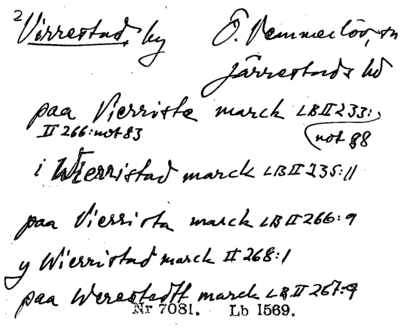 2 Virrestad, by Ö. Vemmerlöv, sn
Järrestads hd
paa Vierrista marck LB II 233:
II 266: not 83 (not 88
i Wierristad marck LB II 235:11
paa Vierrista marck LB II 266:9
y Wierristad marck II 268:1
paa Werestadtt marck LB II 267:9
Nr 7081. Lb 1569.